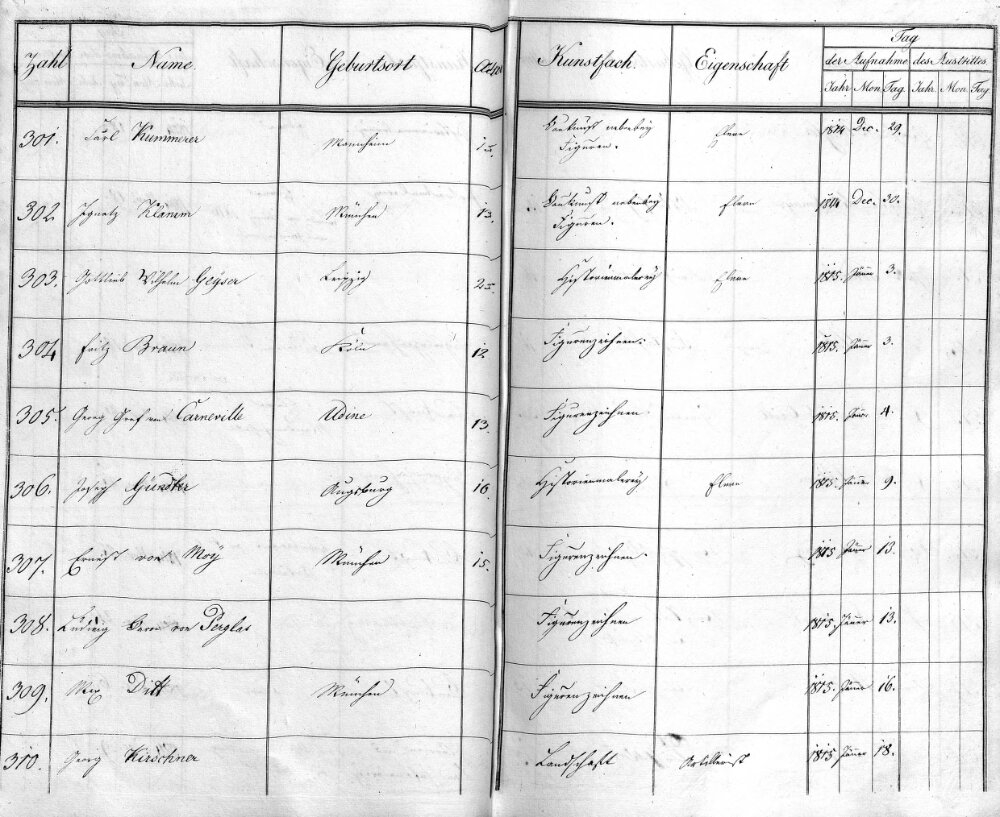 Zahl Name Geburtsort Alter Kunstfach. Eigenschaft Tag
der Aufnahme des Austrittes
Jahr Mon. Tag. Jahr. Mon. Tag
301. Carl Kummerer Mannheim Baukunst nebenbey Eleve 1814 Dec. 29.
Figuren.
302. Ignatz Klamm München 13. Baukunst nebenbey Eleve 1814 Dec. 30.
Figuren.
303. Gottlieb Wilhelm Geyser Leipzig Historienmalerey Eleve 1815. Jänner 3.
304. Fritz Braun Köln 12 Figurenzeichnen. 1815. Jänner 3.
305. Georg Graf von Carneville Udine 13. Figurenzeichnen 1815 Jänner 4.
306. Joseph Gündter Augsburg 16. Historienmalerey Eleve 1815 Jänner 9.
307. Ernst von Moy München 15. Figurenzeichnen. 1815 Jänner 13.
308. Ludwig Baron von Perglas Figurenzeichnen 1815. Jänner 13.
309. Max Ditt München Figurenzeichnen 1815. Jänner 16.
310. Georg Kirschner Landschaft Artillerist 1815 Jänner 18.